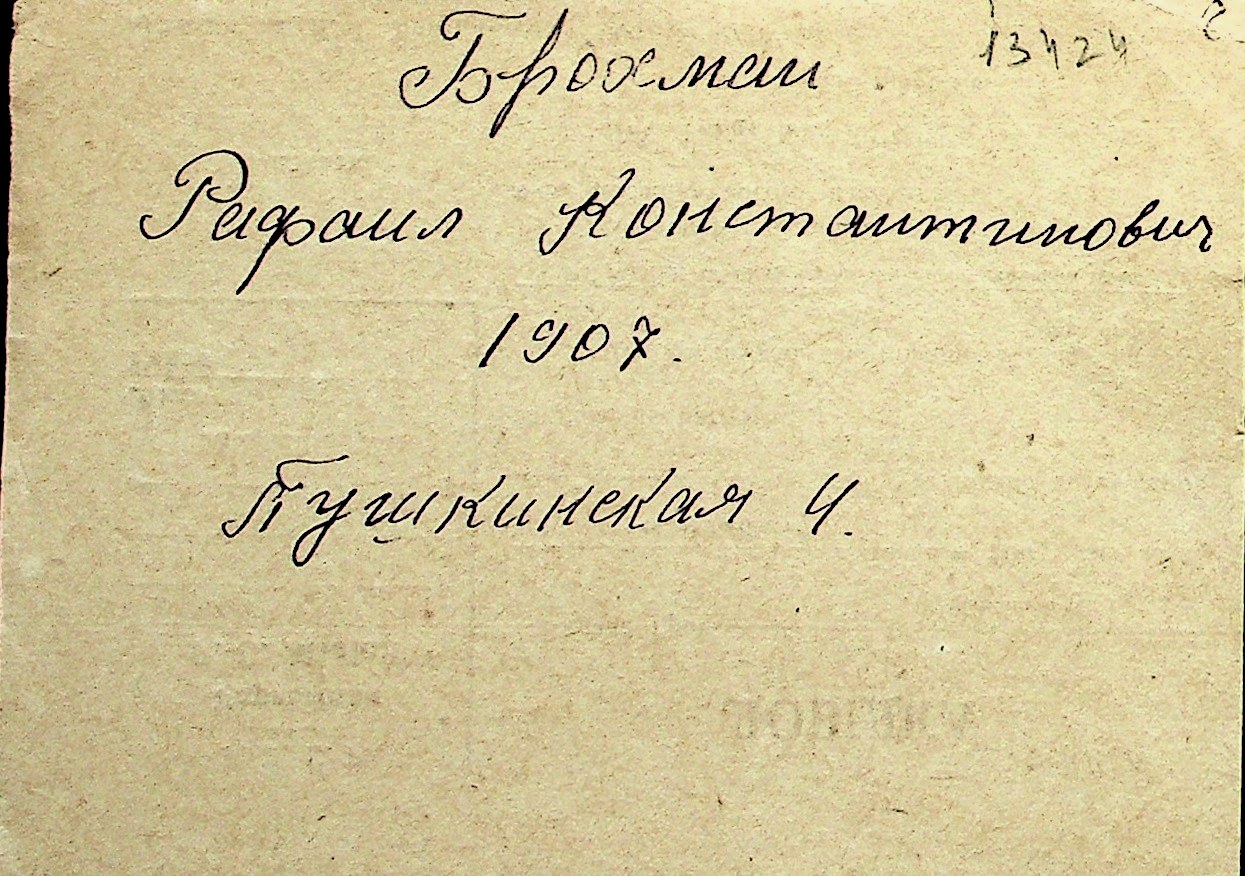 Брохман 13424
Рафаил Константинович
1907.
Пушкинская 4.